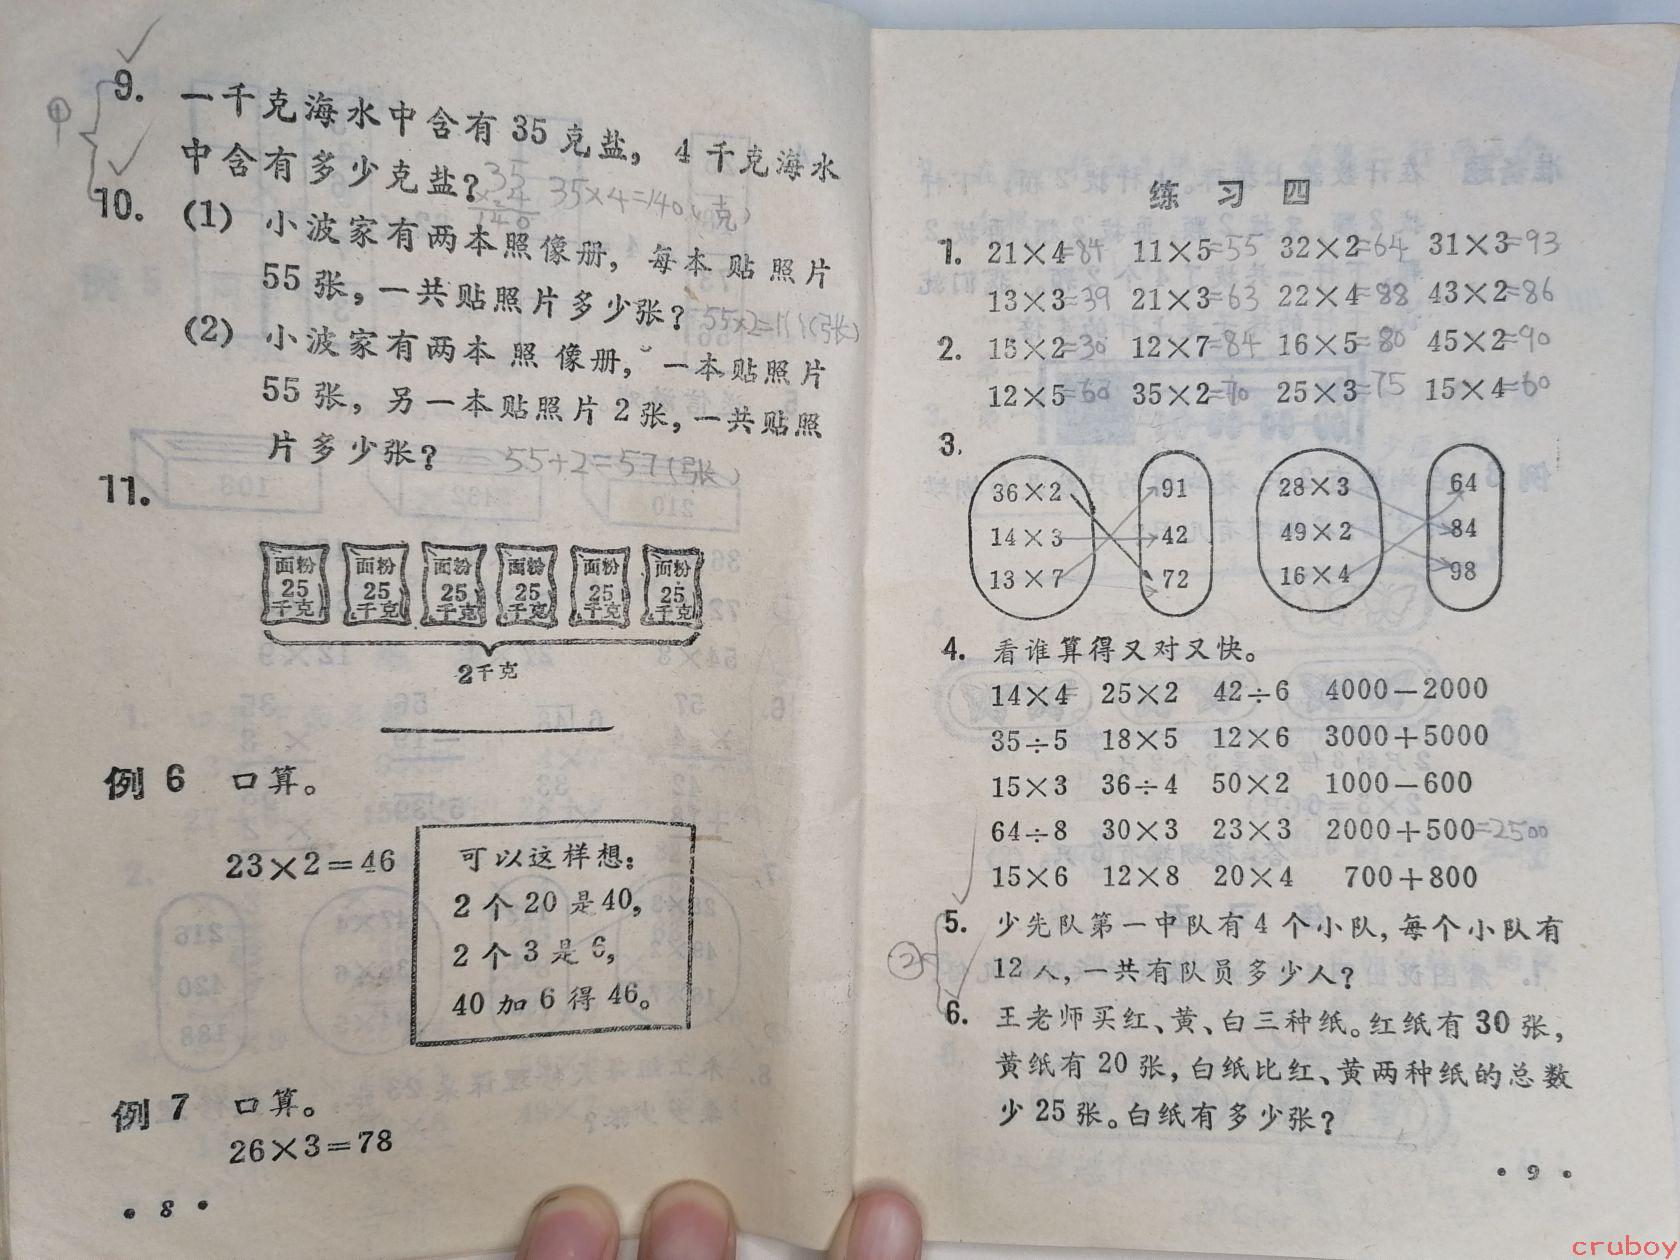 9. 一千克海水中含有 35 克盐，4 千克海水
中含有多少克盐？ 35×4=140(克)
35
×4
140
10. (1) 小波家有两本照像册，每本贴照片
55 张，一共贴照片多少张？
(2) 小波家有两本照像册，一本贴照片
55 张，另一本贴照片 2 张，一共贴照
片多少张？ 55+2=57(张)
11.
面粉 面粉 面粉 面粉 面粉 面粉
25 25 25 25 25 25
千克 千克 千克 千克 千克 千克
2千克
例 6 口算。
23×2=46
可以这样想：
2 个 20 是 40，
2 个 3 是 6，
40 加 6 得 46。
例 7 口算。
26×3=78
• 8 •
练 习 四
1. 21×4=84 11×5=55 32×2=64 31×3=93
13×3=39 21×3=63 22×4=88 43×2=86
2. 15×2=30 12×7=84 16×5=80 45×2=90
12×5=60 35×2=70 25×3=75 15×4=60
3.
36×2 91 28×3 64
14×3 42 49×2 84
13×7 72 16×4 98
4. 看谁算得又对又快。
14×4= 25×2 42÷6 4000－2000
35÷5 18×5 12×6 3000＋5000
15×3 36÷4 50×2 1000－600
64÷8 30×3 23×3 2000＋500=2500
15×6 12×8 20×4 700＋800
5. 少先队第一中队有 4 个小队，每个小队有
② 12 人，一共有队员多少人？
6. 王老师买红、黄、白三种纸。红纸有 30 张，
黄纸有 20 张，白纸比红、黄两种纸的总数
少 25 张。白纸有多少张？
• 9 •
cruboy